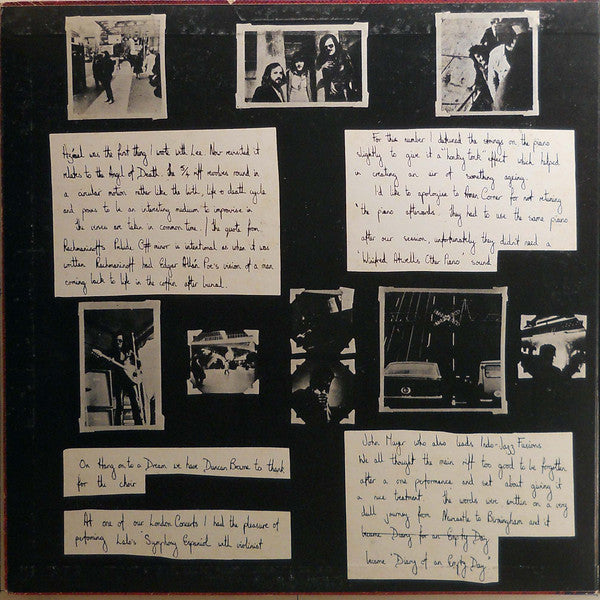 Azrael was the first thing I wrote with Lee. Now revisited it
relates to the Angel of Death. The 5/4 riff revolves round in
a circular motion rather like the birth, life & death cycle
and proves to be an interesting medium to improvise in
the verses are taken in common time. The quote from
Rachmaninoff's Prelude C# minor is intentional as when it was
written Rachmaninoff had Edgar Allan Poe's vision of a man
coming back to life in the coffin after burial.
For this number I detuned the strings on the piano
slightly to give it a "honky tonk" effect which helped
in creating an air of something ageing.
I'd like to apologise to Corner for not retuning
the piano afterwards. They had to use the same piano
after our session, unfortunately they didn't need a
'Winifred Atwell's Other Piano' sound
On Hang on to a Dream we have Duncan Browne to thank
for the choir
At one of our London Concerts I had the pleasure of
performing Lalo's 'Symphony Espaniol' with violinist
John Mayer who also leads Indo-Jazz Fusions.
We all thought the main riff too good to be forgotten
after a one performance and set about giving it
a nice treatment. The words were written on a very
dull journey from Newcastle to Birmingham and it
became Diary for an Empty Day
became 'Diary of an Empty Day'